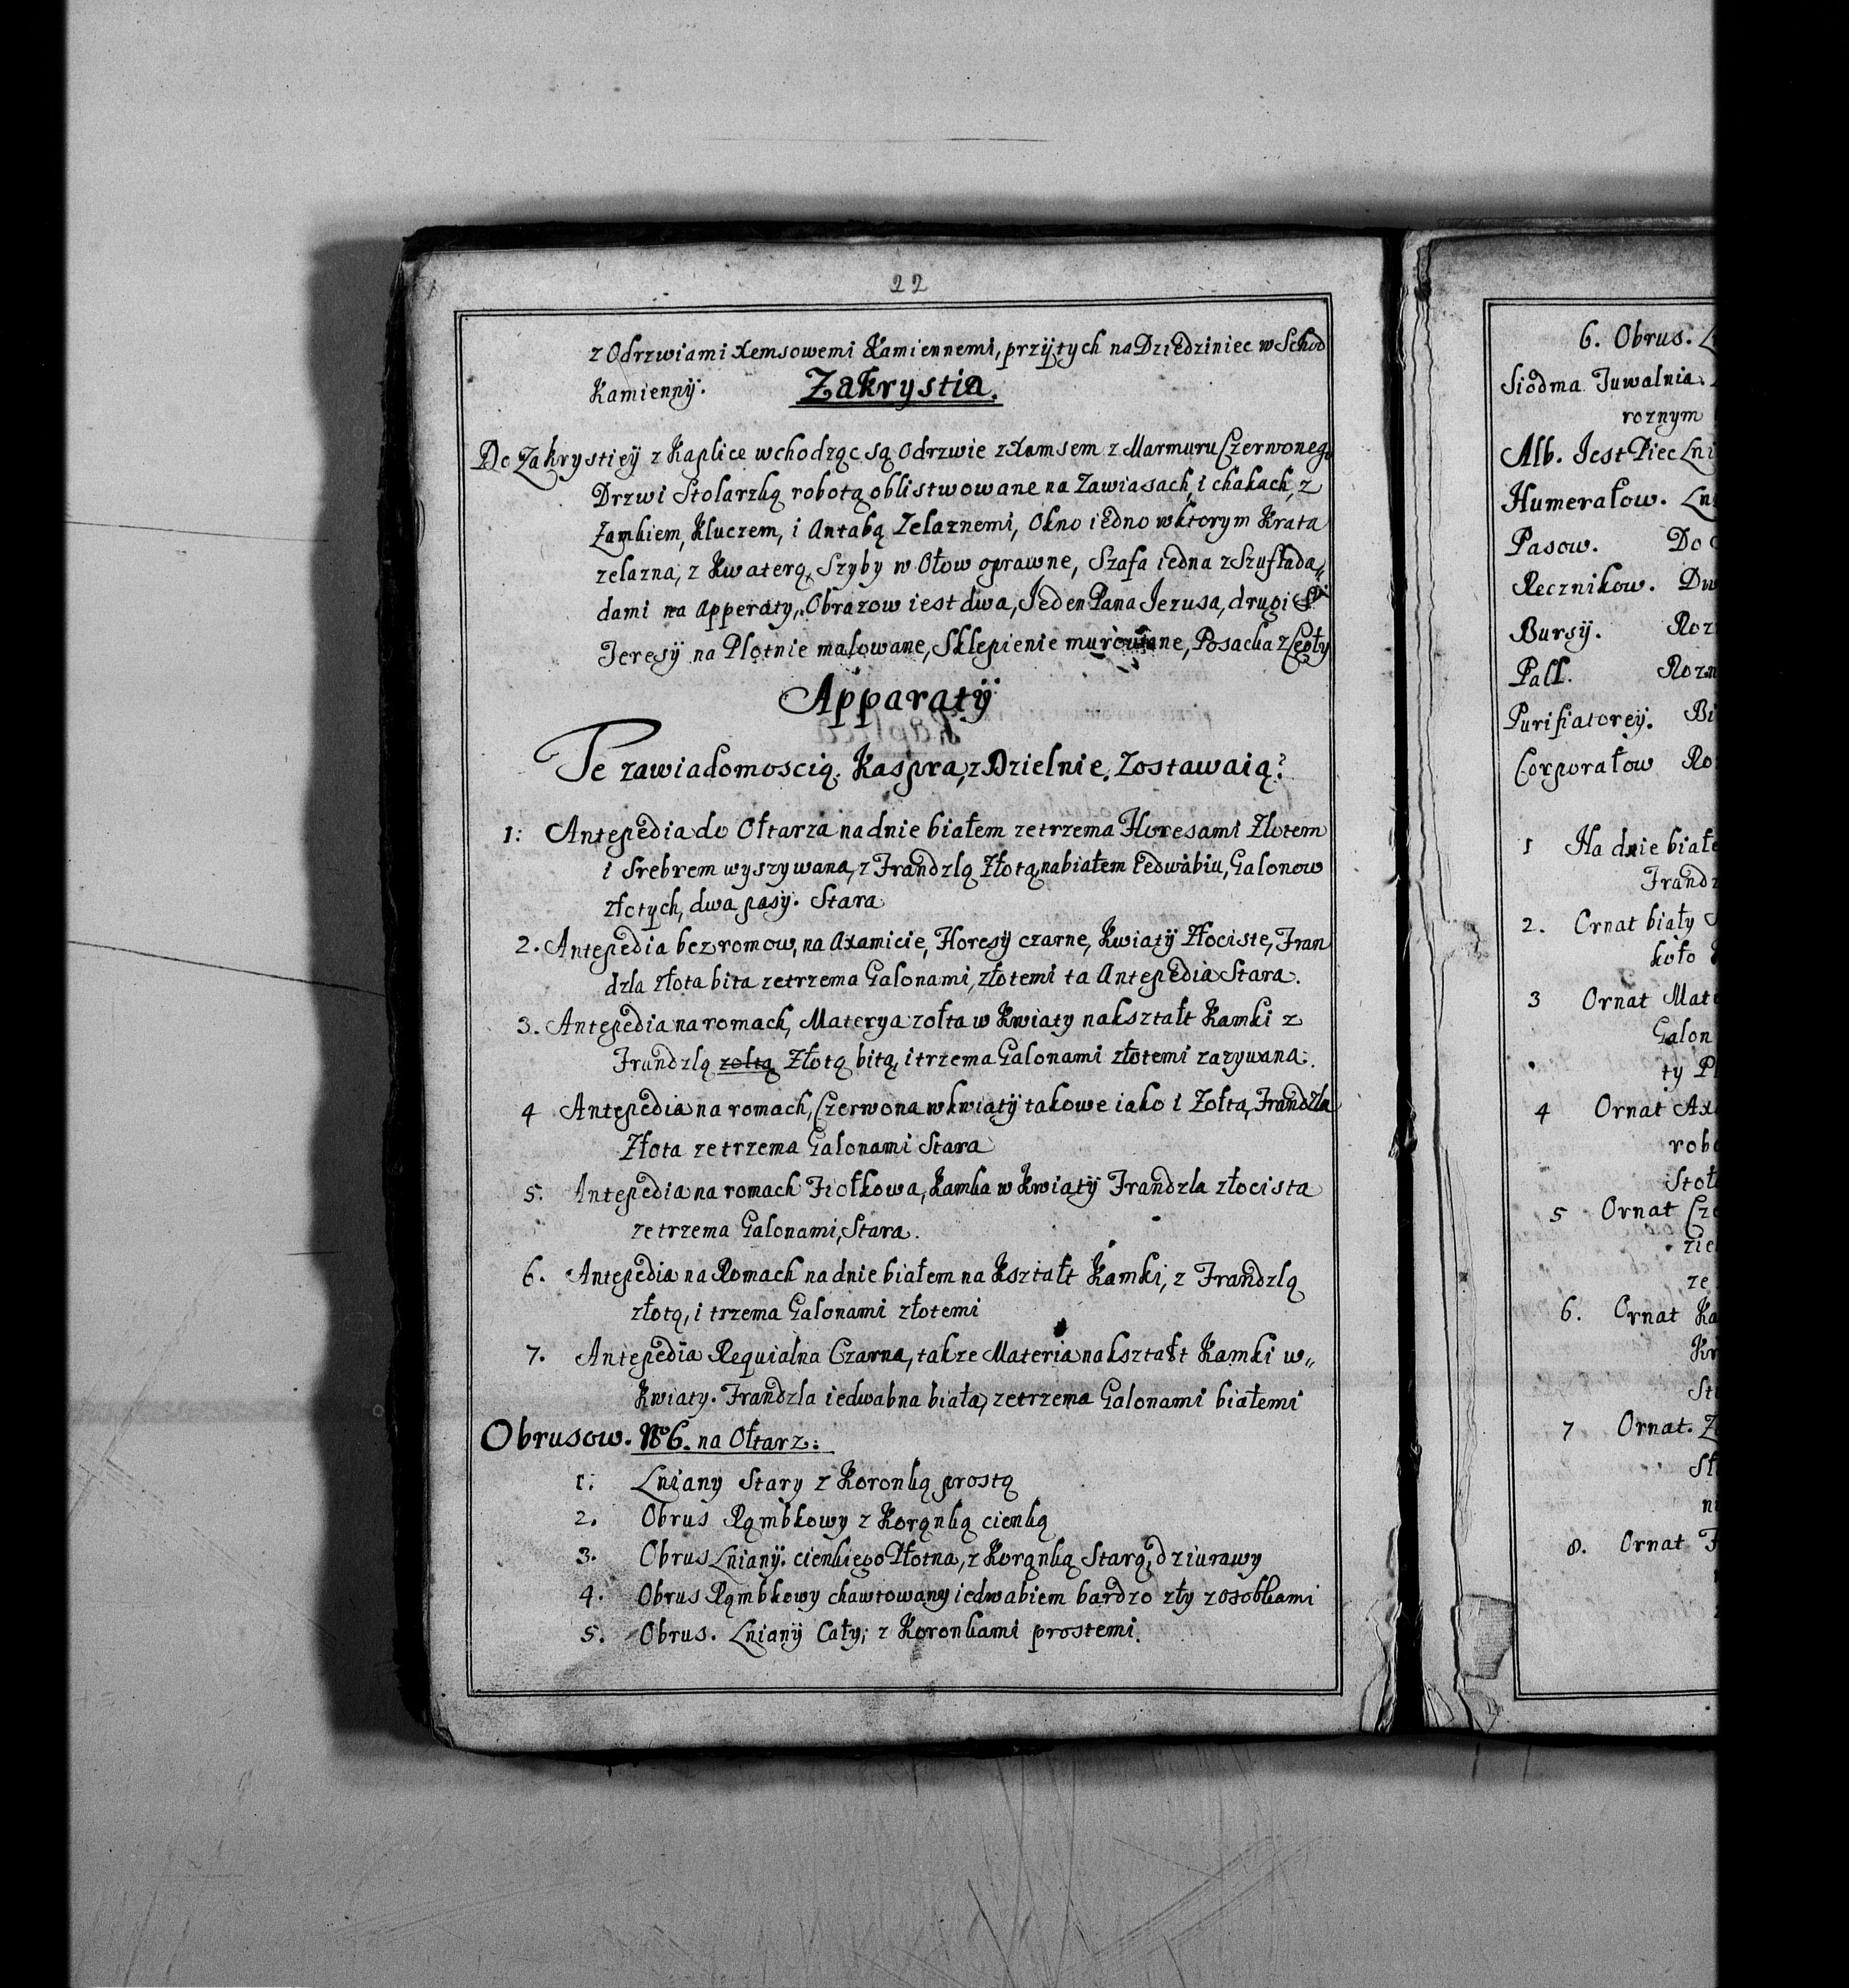 22
z Odrzwiami xemsowemi Kamiennemi, przytych na Dziedziniec w Schod
Kamienny.
Zakrystia.
Do Zakrystiey z Kaplice wchodząc są Odrzwie z xamsem z Marmuru Czerwonego
Drzwi Stolarzką robotą oblistwowane na Zawiasach, i chakach, z
Zamkiem, Kluczem, i Antabą Zelaznemi, Okno iedno wktorym Krata
zelazna, z Kwaterą, Szyby w Ołow oprawne, Szafa iedna z Szuflada„
dami na Apperaty, Obrazow iest dwa, Jeden Pana Jezusa, drugi S
Teresy na Plotnie malowane, Sklepienie murowane, Posacka z Cegły
Apparaty
Te zawiadomoscią. Kaspra, z Dzielnie. Zostawaią?
1: Antepedia do Ołtarza na dnie białem zetrzema Floresami Złotem
i Srebrem wyszywana, z Frandzlą Złotą, na białem Iedwabiu, Galonow
złotych, dwa pasy. Stara
2. Antepedia bez romow, na Axamicie, Floresy czarne, Kwiaty Złociste, Fran
dzla złota bita zetrzema Galonami, złotemi ta Antepedia Stara.
3. Antepedia na romach, Materya zołta w Kwiaty nakształt Kamki z
Frandzlą zołtą Złotą bitą, i trzema Galonami złotemi zazywana.
4 Antepedia na romach, Czerwona w kwiaty takowe iako i Zołta, Frandzla
Złota zetrzema Galonami Stara
5. Antepedia na romach Fiołkowa, Kamka w Kwiaty Frandzla złocista
zetrzema Galonami, Stara.
6. Antepedia na Romach na dnie białem na Kształt Kamki, z Frandzlą
złotą, i trzema Galonami złotemi
7. Antepedia Requialna Czarna, takze Materia nakształt Kamki w„
Kwiaty. Frandzla iedwabna biała, zetrzema Galonami białemi
Obrusow. No 6. na Ołtarz:
1: Lniany Stary z Koronką prostą
2. Obrus Rąmbkowy z Korąnką cienką
3. Obrus Lniany. cienkiego Płotna, z Korąnką Starą, dziurawy
4. Obrus Rąmbkowy chawtowany iedwabiem bardzo zły zosobkami
5. Obrus. Lniany Cały; z Koronkami prostemi.
6. Obrus.
Siodma Tuwalnia.
roznym
Alb. Jest Piec Lni
Humerałow. Ln
Pasow. Do
Recznikow. Dw
Bursy. Roz
Pall. Rozn
Purifiatorey. Bi
Corporałow Ro
1 Na dnie białe
Frandz
2. Ornat biały
koło
3 Ornat Mat
Galon
ty P
4 Ornat Ax
robo
Stoł
5 Ornat Cze
ziel
ze
6. Ornat Ka
Kr
St
7 Ornat. Z
St
n
8. Ornat F